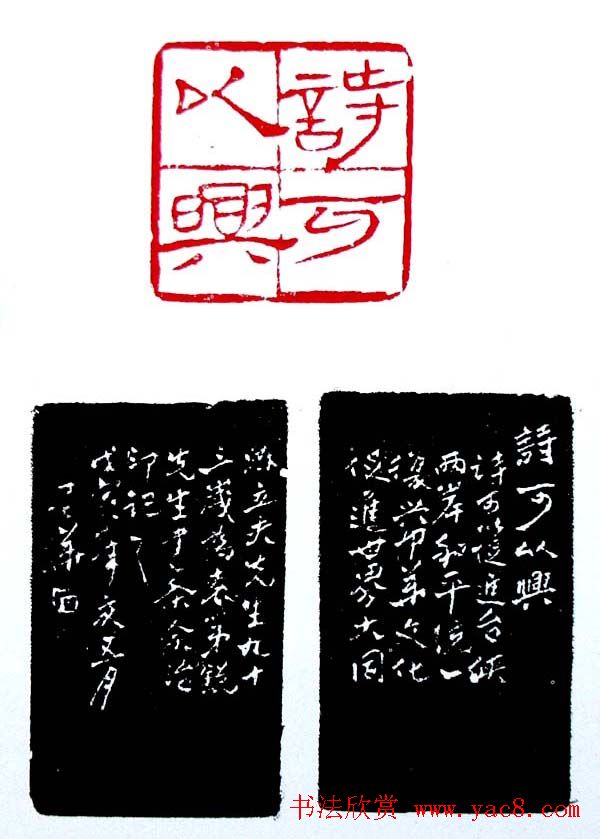 詩可
以興
詩可以興
詩可以促進台峽
兩岸和平統一
復兴中華文化
促進世界大同
立夫先生九十
三歲為
先生書余治
印記之
戊寅年夏五月
书法欣赏 www.yac8.com